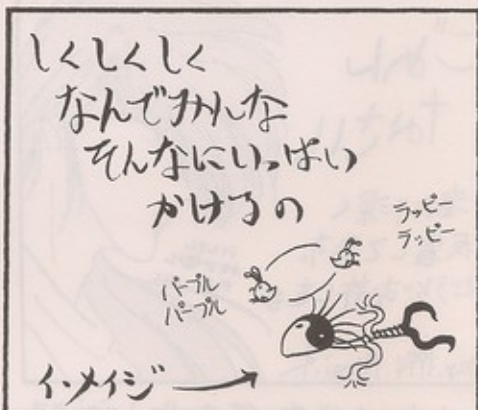 しくしくしく
なんでみんな
そんなにいっぱい
かけるの
ラッピー
ラッピー
パープル
パープル
イメイジ